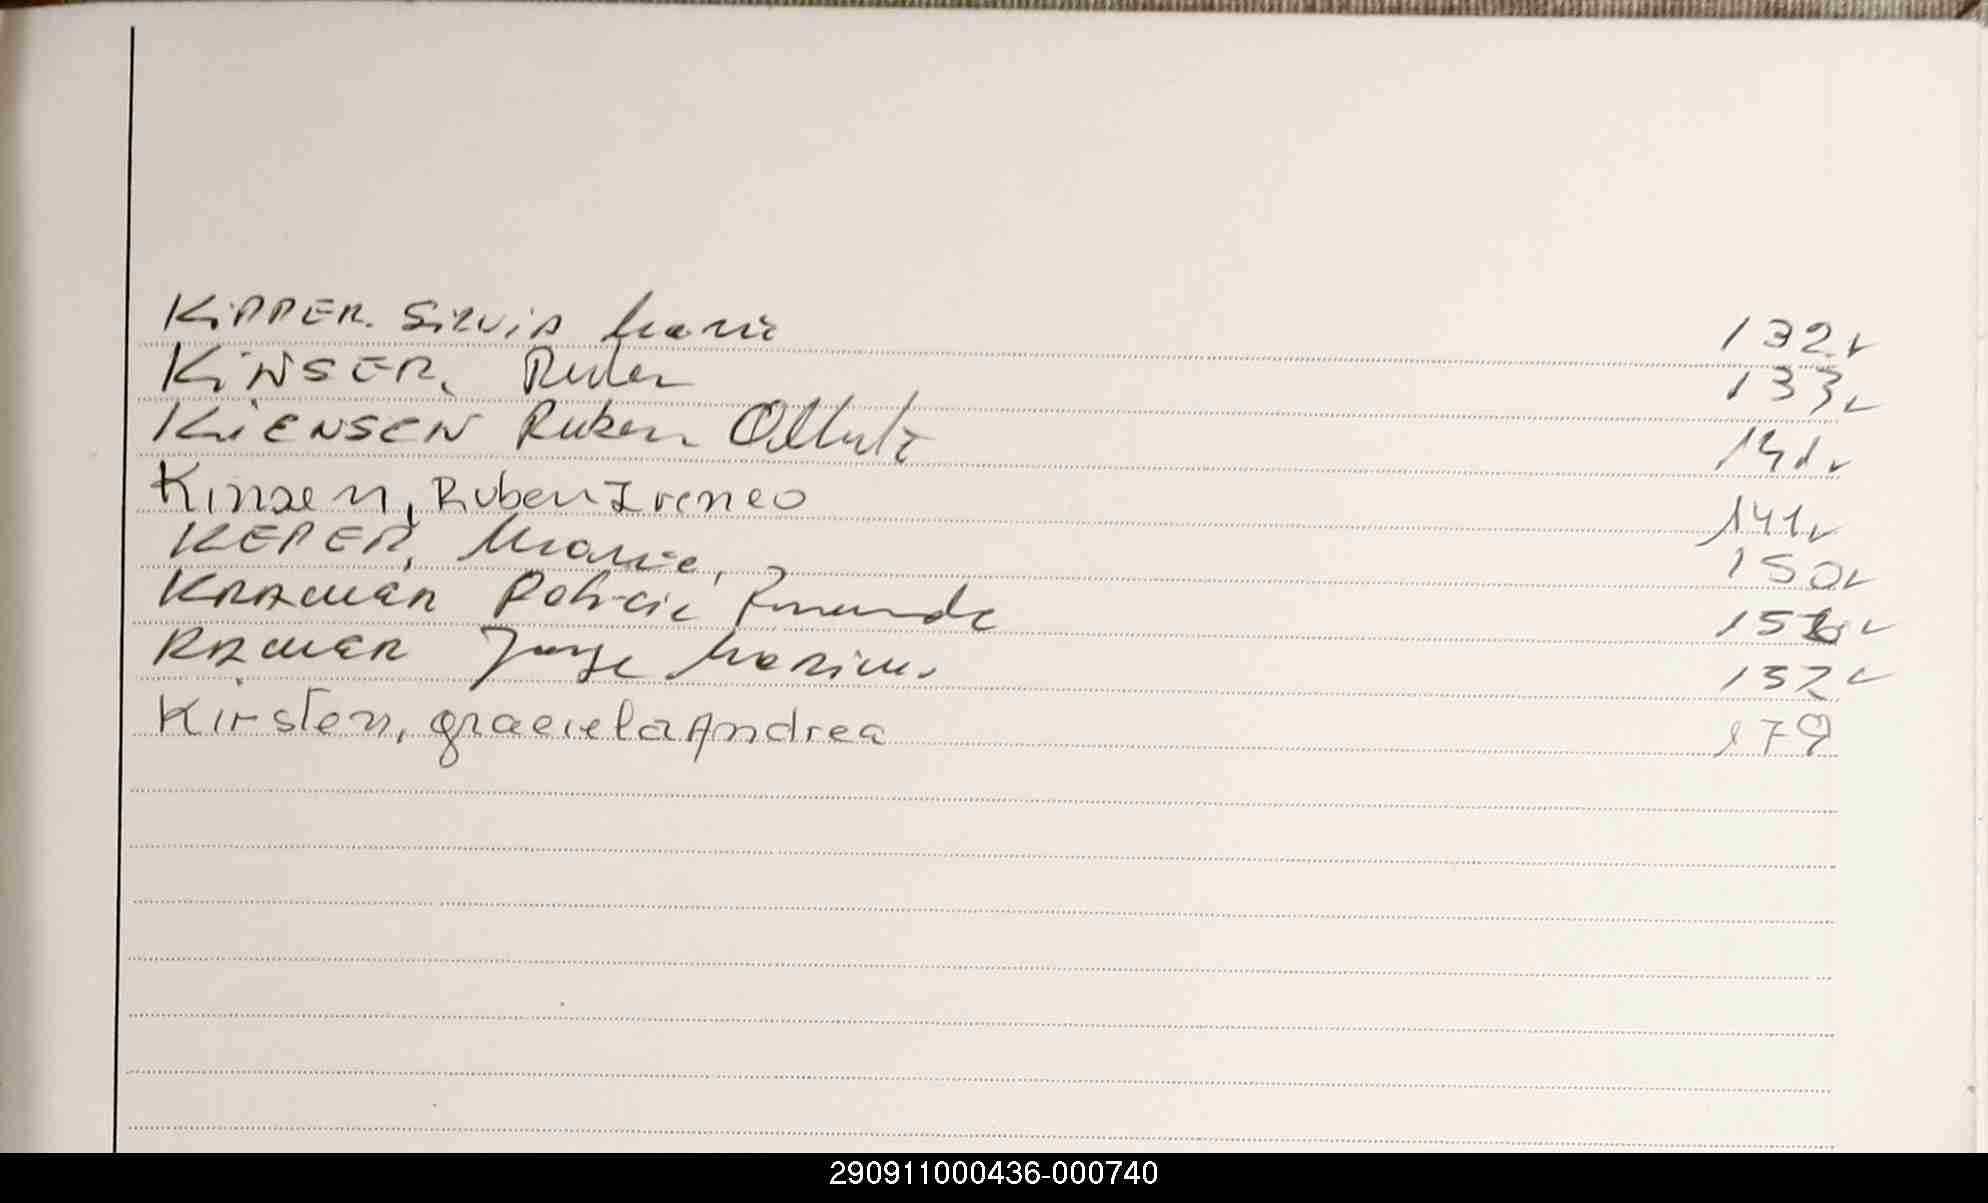 KIPPER. Silvia Maria 132v
KINSER, Ruben 133v
KIENSEN Ruben Alberto 141v
Kinsen, Ruben Ireneo 141v
KEPER, Maria, 150v
KRAMER Patricia 151v
KRAMER Jorge Maximo 152v
Kirsten, graciela Andrea 179
290911000436-000740